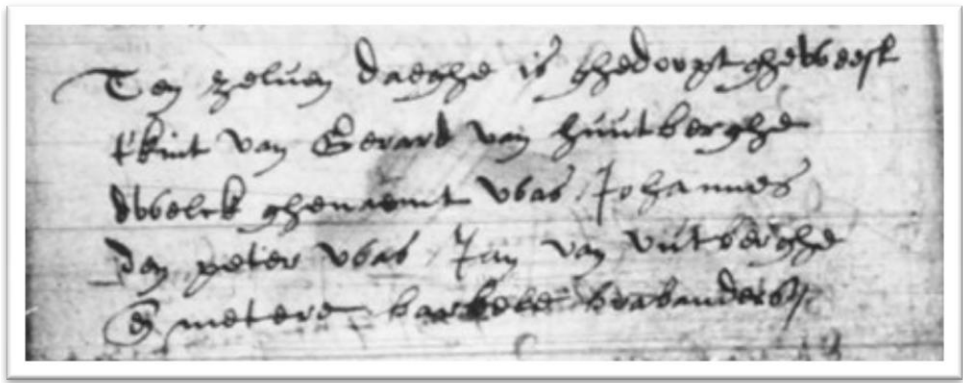 Ten zeluen daeghe is ghedoopt gheweest
t'kint van Gerard van huutberghe
dwelck ghenaemt was Johannes
den peter was Jan van vutberghe
en metere barbele brabanders